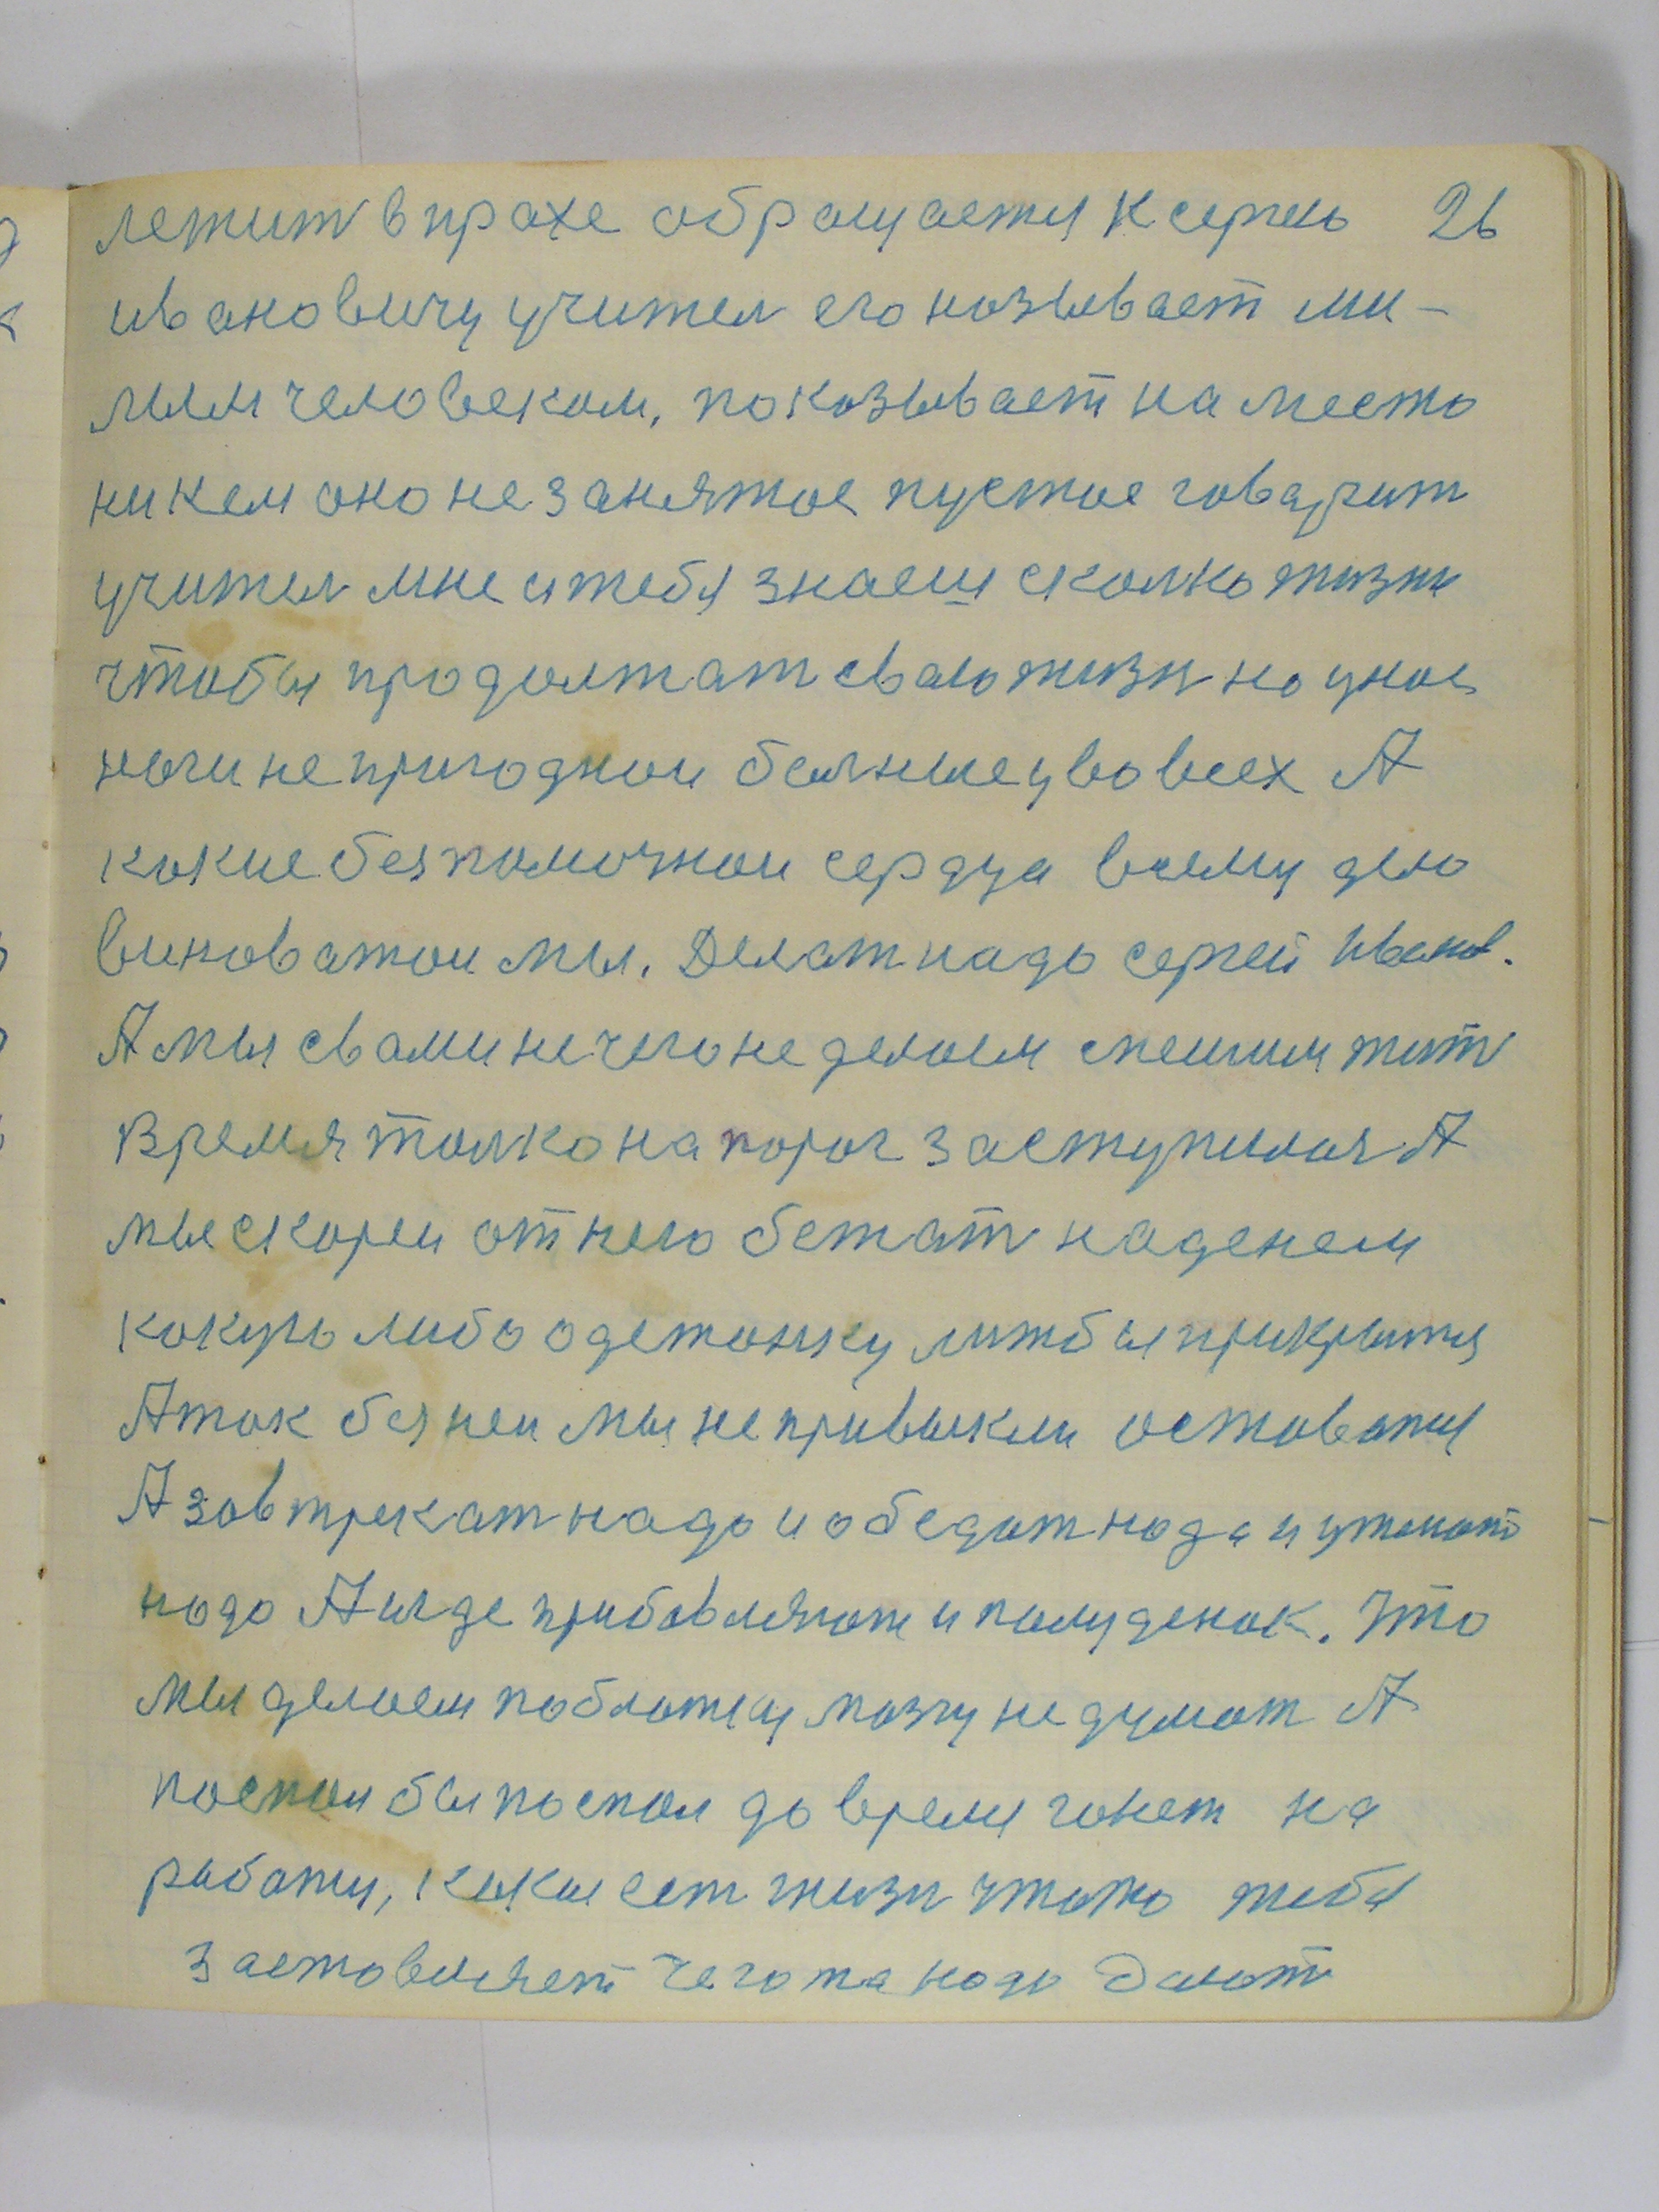 лежит в прахе обращается к сергею 26
ивановичу учител его називает ми-
лым человеком, показывает на место
ни кем оно не занятое пустое говарит
учител мне и тебя знаеш сколко жизни
чтобы продолжат сваю жизн но у нас
ночи не пригоднои болние у во всех А
какие безпомочнои сердца всему делу
виноватои мы. Делат надо сергей Иванов.
А мы с вами нечего не делаем спешим жит
Время толко на порог заступилося А
мы скореи от него бежат наденем
какую либо одежонку лижбы прикрытся
А так без неи мы не привыкли оставатся
А завтрекат надо и обедат надо и ужинат
надо А иде прибавляют и полуденок. Что
мы делаем по блюжеи мозгу не думат А
поспал бы поспал до время гонет на
работу, какая ест жизн чтото тебя
заставляет чегота надо Далат